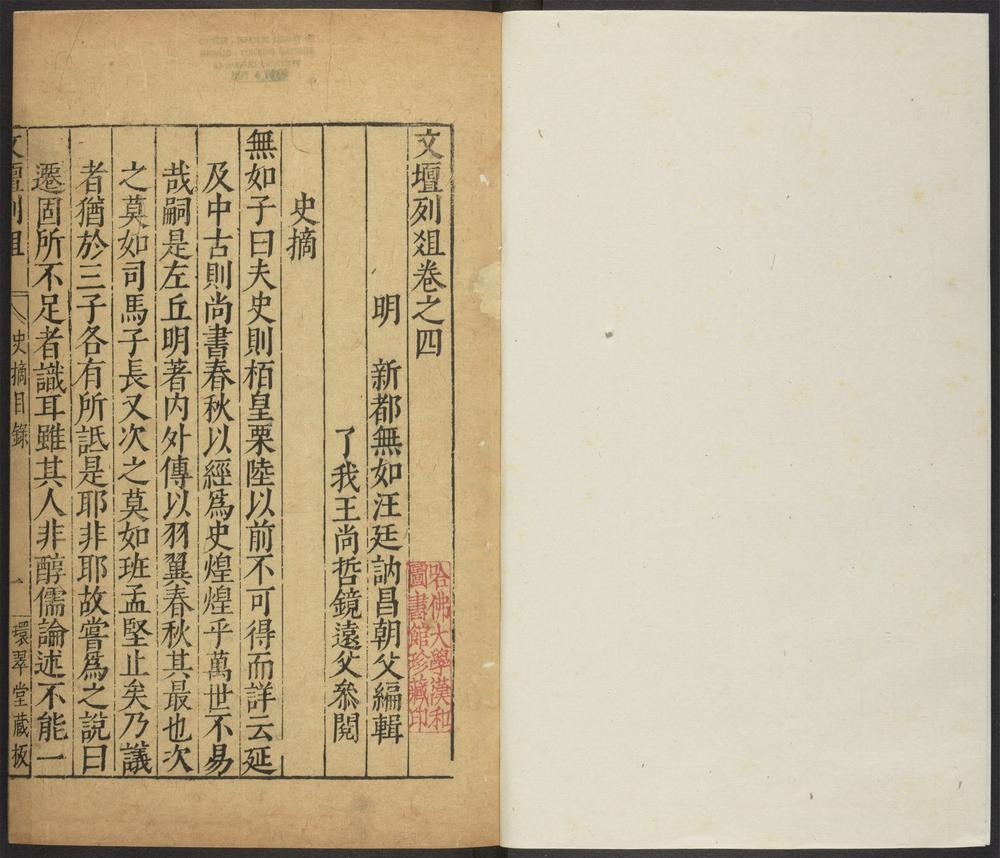 文壇列俎卷之四
明 新都無如汪廷訥昌朝父編輯
了我王尚哲鏡遠父叅閱
史摘
無如子曰夫史則栢皇栗陸以前不可得而詳云延
及中古則尚書春秋以經爲史煌煌乎萬世不易
哉嗣是左丘明著内外傳以羽翼春秋其最也次
之莫如司馬子長又次之莫如班孟堅止矣乃議
者猶於三子各有所詆是耶非耶故嘗爲之說曰
遷固所不足者識耳雖其人非醇儒論述不能一
文壇列俎 史摘目錄 一 環翠堂藏板
哈佛大學漢和
圖書館珍藏印